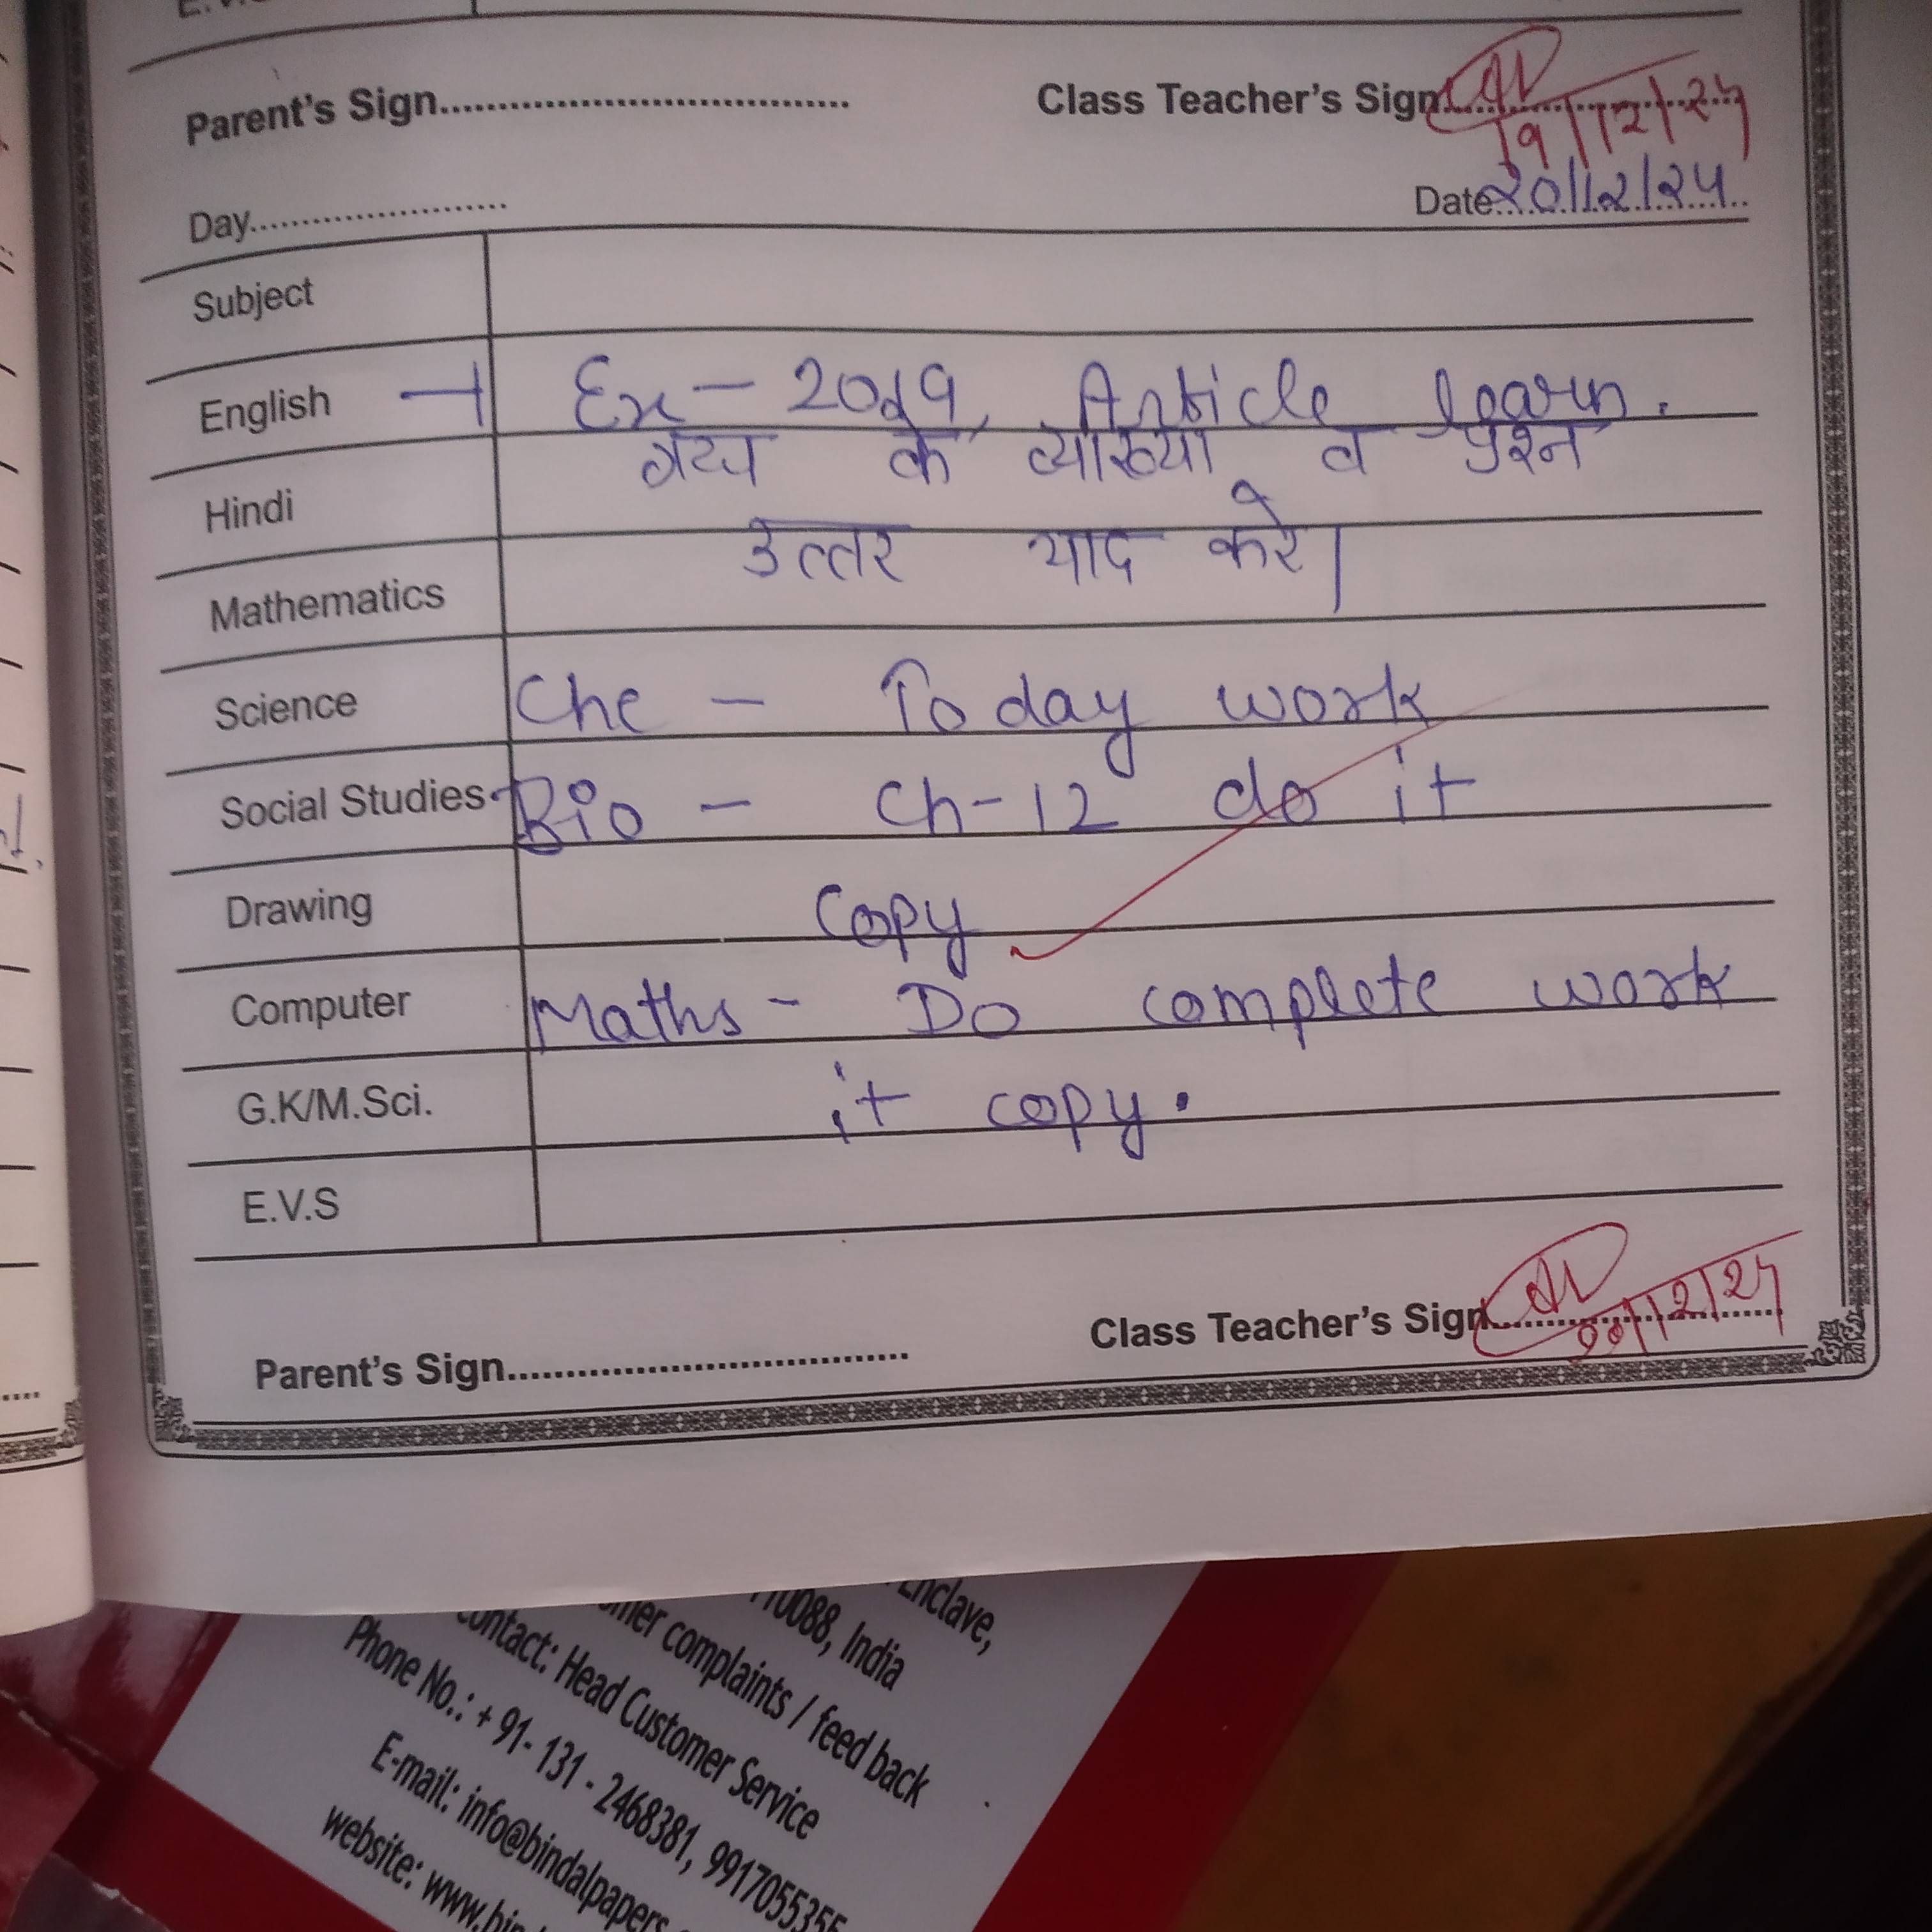 Parent's Sign................................... Class Teacher's Sign....................
19/12/24
Day....................... Date 20/12/24
Subject
English Ex - 20, Article learn.
Hindi गद्य के व्याख्या व प्रश्न
उत्तर याद करे।
Mathematics
Science Che - Today work
Social Studies Bio - Ch-12 do it
Drawing Copy
Computer Maths - Do complete work
G.K/M.Sci. it copy.
E.V.S
Parent's Sign.................................. Class Teacher's Sign....................
20/12/24
Enclave,
110088, India
complaints / feed back
contact: Head Customer Service
Phone No.: + 91- 131 - 2468381, 9917055355
E-mail: info@bindalpapers
website: www.bin